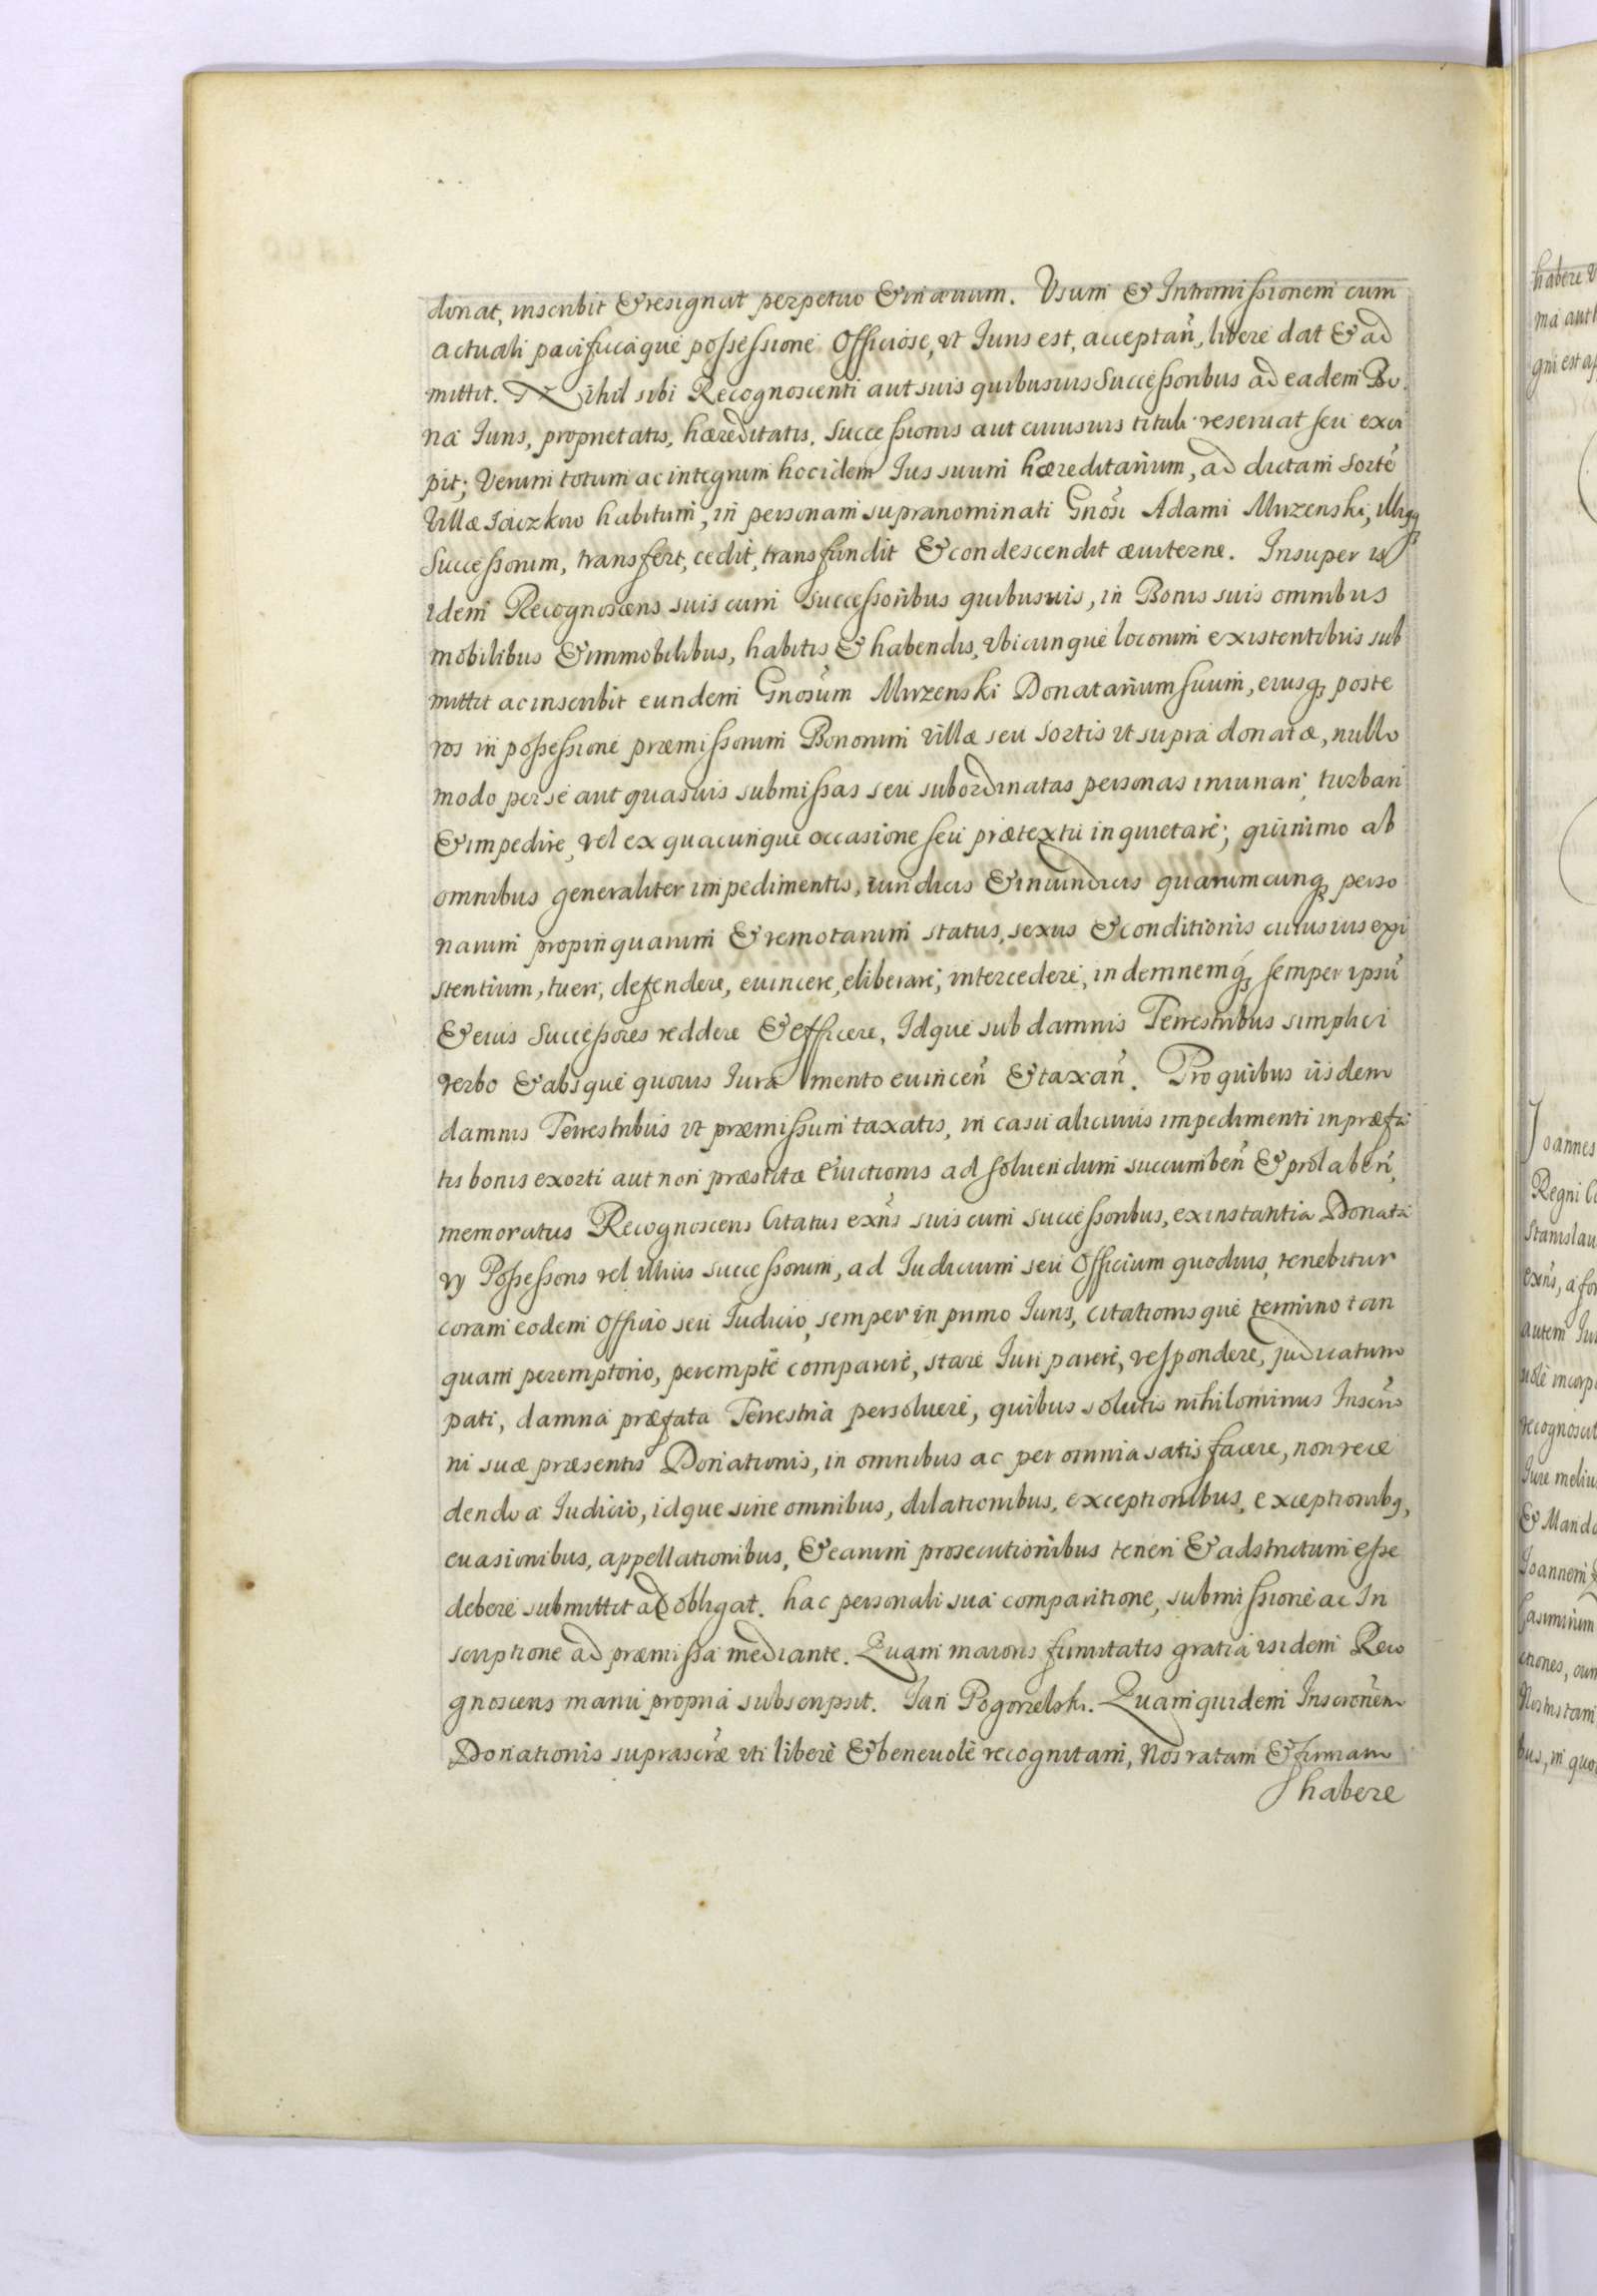 donat, inscribit & resignat perpetuo & in ævum. Vsum & Intromissionem cum
actuali pacificaque possessione Officiose, vt Iuris est, acceptañ, libere dat & ad
mittit. Nihil sibi Recognoscenti aut suis quibusuis Successoribus ad eadem Bo
na Iuris, proprietatis, hæreditatis, Successionis aut cuiusuis tituli reseruat seu exci
pit; Verum totum ac integrum hoc idem Ius suum hæreditarium, ad dictam sortē
Villæ Iaczkno habitum, in personam supranominati Gnosi Adami Mirzenski, illiqz
Successorum, transfert, cedit, transfundit & condescendit æuiterne. Insuper is
idem Recognoscens suis cum Successoribus quibusuis, in Bonis suis omnibus
mobilibus & immobilibus, habitis & habendis, vbicunque locorum existentibus sub
mittit ac inscribit eundem Gnosum Mirzenski Donatarium suum, eiusqz poste
ros in possessione præmissorum Bonorum villæ seu sortis vt supra donatæ, nullo
modo per se aut quasuis submissas seu subordinatas personas iniuriari, turbari
& impedire, vel ex quacunque occasione seu prætextu inquietare; quinimo ab
omnibus generaliter impedimentis, iuridicis & iniuridicis quarumcunqz perso
narum propinquarum & remotarum status, sexus & conditionis cuiusuis exi
stentium, tueri, defendere, euincere, eliberare, intercedere, indemnemqz semper ipsū
& eius Successores reddere & efficere, Idque sub damnis Terrestribus simplici
verbo & absque quouis Iuramento euinceñ & taxañ. Pro quibus iisdem
damnis Terrestribus vt præmissum taxatis, in casu alicuius impedimenti in præfa
tis bonis exorti aut non præstitæ euictionis ad soluendum succumbeñ & prolabeñ,
memoratus Recognoscens Citatus exñs suis cum successoribus, ex instantia Donata
rij Possessoris vel illius successorum, ad Iudicium seu Officium quoduis, tenebitur
coram eodem Officio seu Iudicio, semper in primo Iuris, citationisque termino tan
quam peremptorio, perempte comparere, stare Iuri parere, respondere, judicatum
pati, damna præfata Terrestria persoluere, quibus solutis nihilominus Inscrõ
ni suæ præsentis Donationis, in omnibus ac per omnia satisfacere, non rece
dendo a Iudicio, idque sine omnibus, dilationibus, exceptionibus, exceptionibqz,
euasionibus, appellationibus, & earum prosecutionibus teneri & adstrictum esse
debere submittit ac obligat. hac personali sua comparitione, submissione ac In
scriptione ad præmissa mediante. Quam maioris firmitatis gratia isidem Reco
gnoscens manu propria subscripsit. Jan Pogorzelski. Quam quidem Inscrionem
Donationis suprascræ vti libere & beneuole recognitam, Nos ratam & firmam
habere